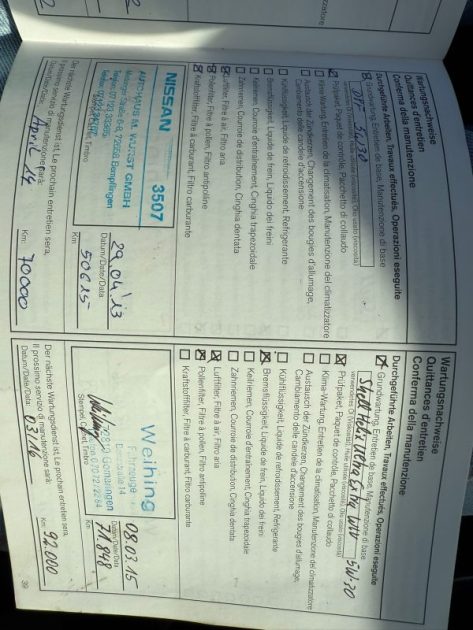 Wartungsnachweise
Quittances d'entretien
Conferma della manutenzione
Durchgeführte Arbeiten, Travaux effectués, Operazioni eseguite
Grundwartung, Entretien de base, Manutenzione di base
DPF 5W30
Prüfpaket, Paquet de contrôle, Pacchetto di collaudo
Klima-Wartung, Entretien de la climatisation, Manutenzione del climatizzatore
Austausch der Zündkerzen, Changement des bougies d'allumage,
Cambiamento delle candele d'accensione
Kühlflüssigkeit, Liquide de refroidissement, Refrigerante
Bremsflüssigkeit, Liquide de frein, Liquido dei freni
Keilriemen, Courroie d'entraînement, Cinghia trapezoidale
Zahnriemen, Courroie de distribution, Cinghia dentata
Luftfilter, Filtre à air, Filtro aria
Pollenfilter, Filtre à pollen, Filtro antipolline
Kraftstofffilter, Filtre à carburant, Filtro carburante
NISSAN 3507
AUTOHAUS M. HURST GMBH
72658 Bempflingen
29.04.13
Datum/Date/Data:
50615
Km:
Der nächste Wartungsdienst ist, Le prochain entretien sera,
Il prossimo servizio di manutenzione sarà:
Datum/Date/Data: April 14
Km: 70000
Wartungsnachweise
Quittances d'entretien
Conferma della manutenzione
Durchgeführte Arbeiten, Travaux effectués, Operazioni eseguite
Grundwartung, Entretien de base, Manutenzione di base
Shell Helix Ultra Extra 5W-30
Prüfpaket, Paquet de contrôle, Pacchetto di collaudo
Klima-Wartung, Entretien de la climatisation, Manutenzione del climatizzatore
Austausch der Zündkerzen, Changement des bougies d'allumage,
Cambiamento delle candele d'accensione
Kühlflüssigkeit, Liquide de refroidissement, Refrigerante
Bremsflüssigkeit, Liquide de frein, Liquido dei freni
Keilriemen, Courroie d'entraînement, Cinghia trapezoidale
Zahnriemen, Courroie de distribution, Cinghia dentata
Luftfilter, Filtre à air, Filtro aria
Pollenfilter, Filtre à pollen, Filtro antipolline
Kraftstofffilter, Filtre à carburant, Filtro carburante
Weihing
Gomaringen
08.03.15
Datum/Date/Data:
71848
Km:
Der nächste Wartungsdienst ist, Le prochain entretien sera,
Il prossimo servizio di manutenzione sarà:
Datum/Date/Data: 03/16
Km: 92.000
39